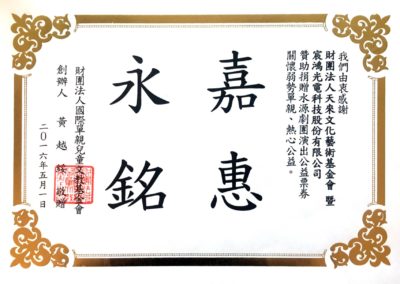 我們由衷感謝
財團法人天來文化藝術基金會 暨
宸鴻光電科技股份有限公司
贊助捐贈水源劇團演出公益票券
關懷弱勢單親、熱心公益。
嘉惠
永銘
財團法人國際單親兒童文教基金會
創辦人 黃越綏 敬贈
二〇一六年五月一日